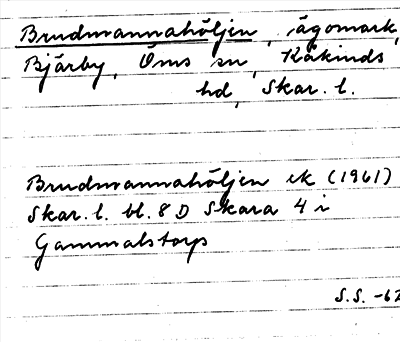 Brudmannahöljen, ägomark,
Bjärby, Öms sn, Kåkinds
hd, Skar. l.
Brudmannahöljen ek (1961)
Skar. l. bl. 8 D Skara 4 i
Gammalstorp
S.S. -62